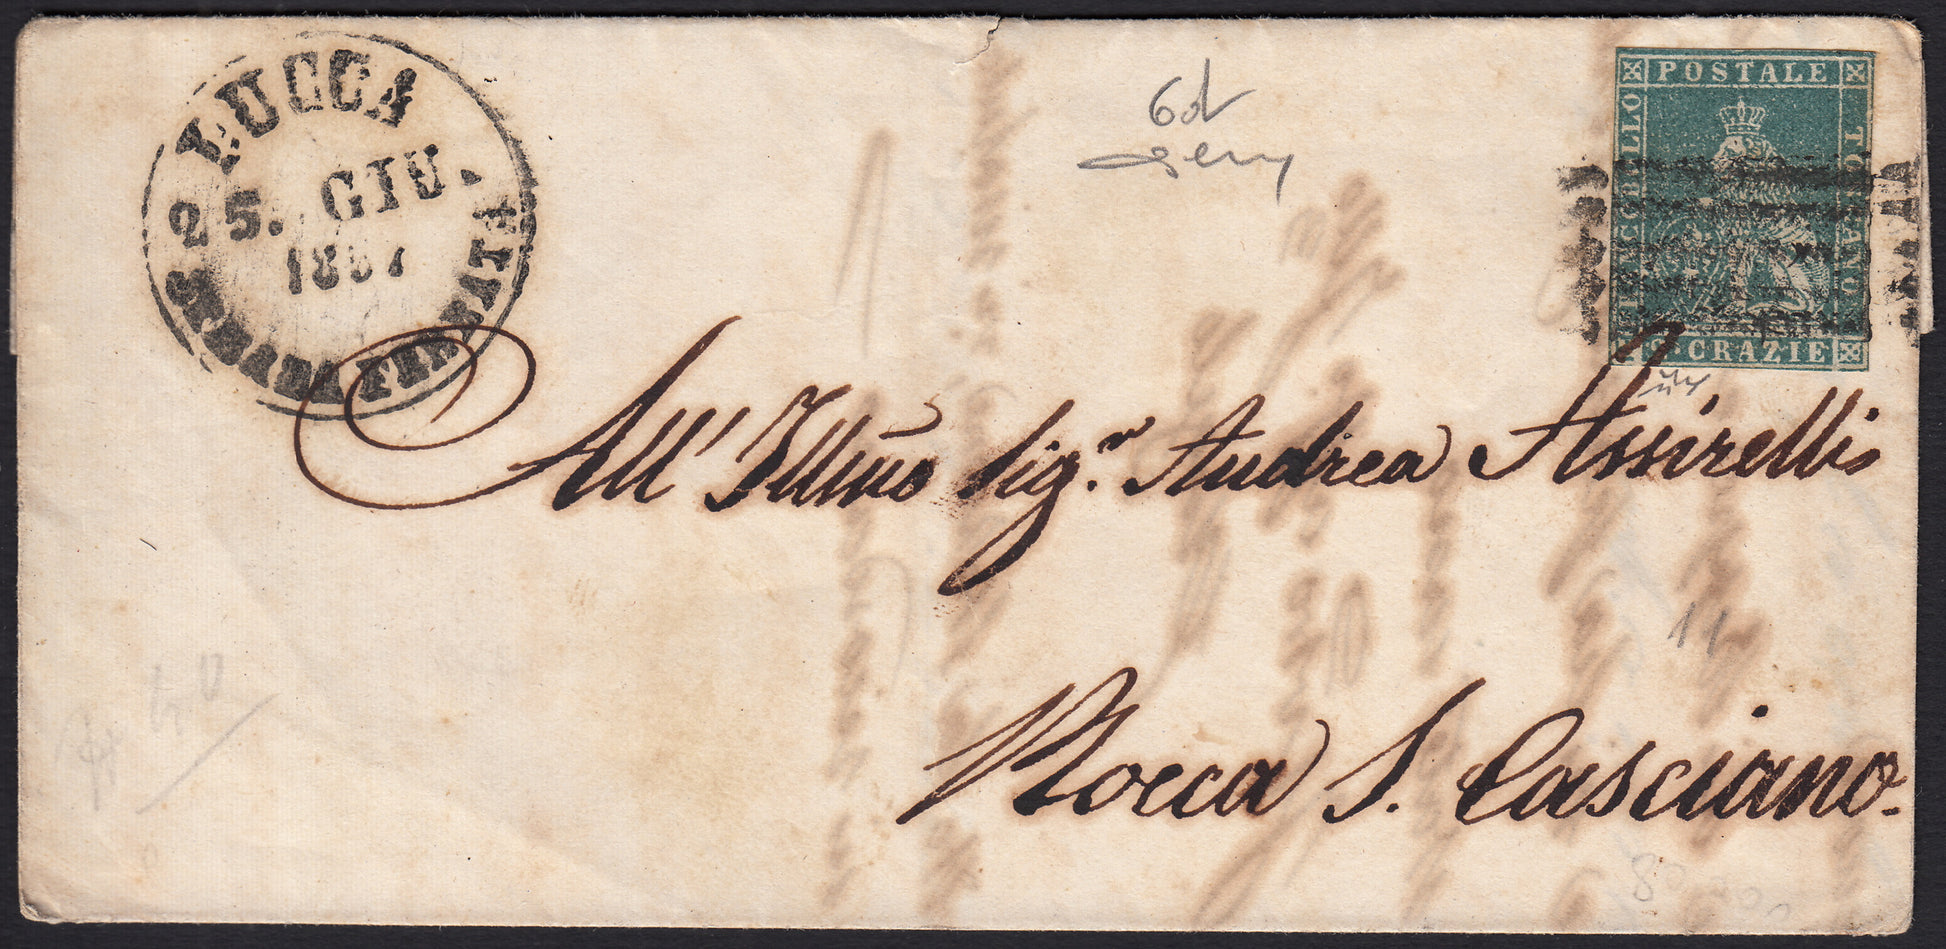 LUCCA
25. GIU.
1857
STRADA FERRATA
6d
POSTALE
FRANCOBOLLO
TOSCANO
CRAZIE
All' Illmo Sigr. Andrea Assirelli
11
Rocca S. Casciano.